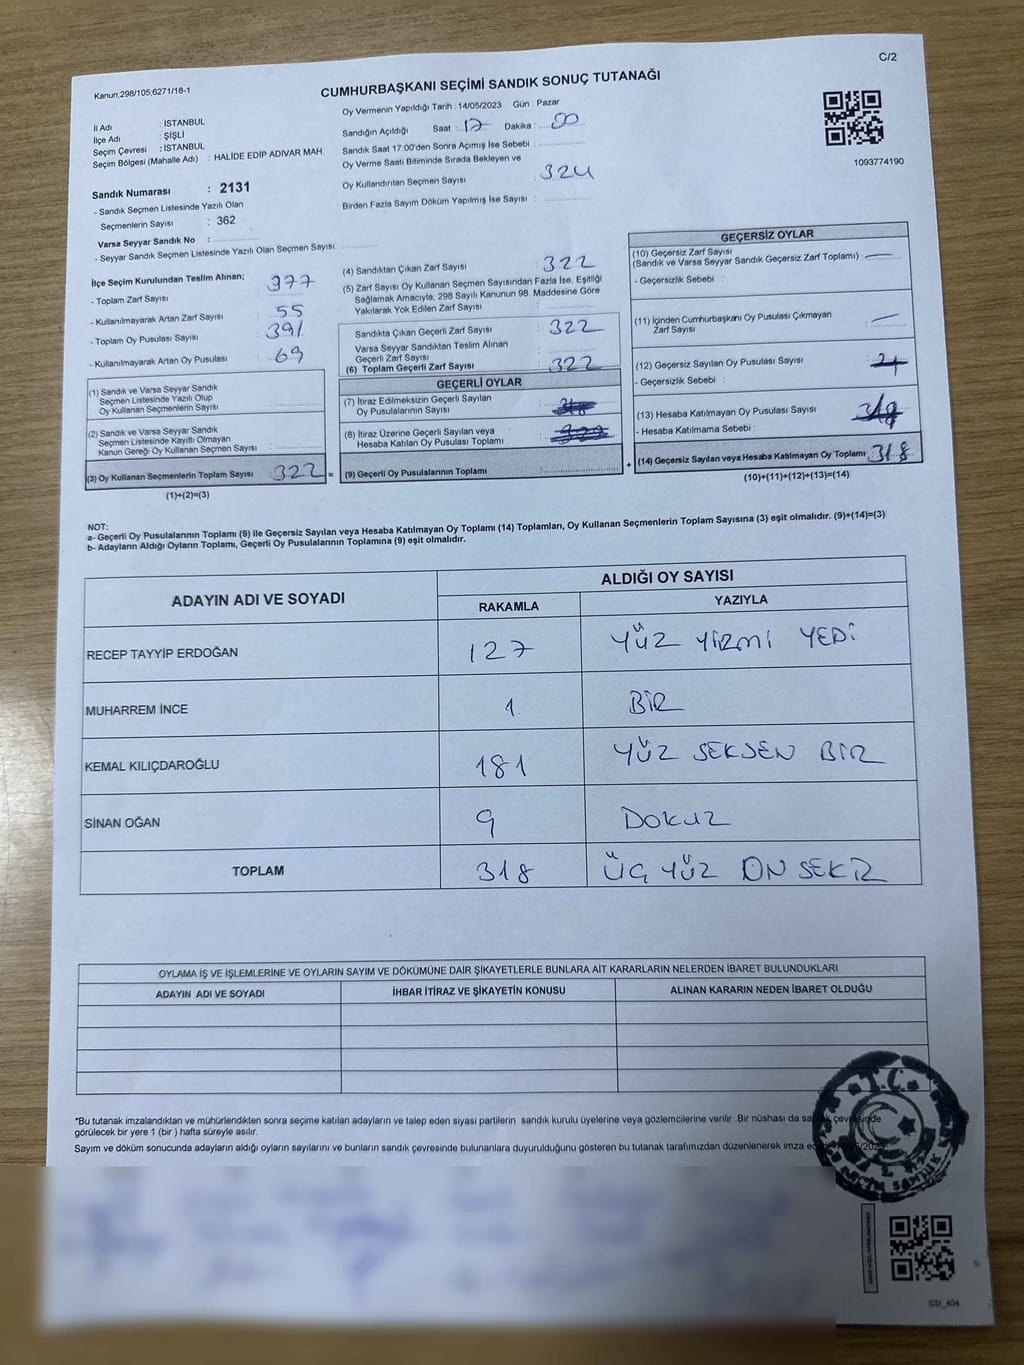 C/2
Kanun:298/105;6271/18-1
CUMHURBAŞKANI SEÇİMİ SANDIK SONUÇ TUTANAĞI
İl Adı : İSTANBUL
İlçe Adı : ŞİŞLİ
Seçim Çevresi : İSTANBUL
Seçim Bölgesi (Mahalle Adı) : HALİDE EDİP ADIVAR MAH.
Oy Vermenin Yapıldığı Tarih : 14/05/2023 Gün : Pazar
Sandığın Açıldığı Saat : 17 Dakika : 00
Sandık Saat 17:00'den Sonra Açımış İse Sebebi :
Oy Verme Saati Bitiminde Sırada Bekleyen ve
Oy Kullandırılan Seçmen Sayısı : 324
Birden Fazla Sayım Döküm Yapılmış İse Sayısı :
1093774190
Sandık Numarası : 2131
- Sandık Seçmen Listesinde Yazılı Olan
Seçmenlerin Sayısı : 362
Varsa Seyyar Sandık No :
- Seyyar Sandık Seçmen Listesinde Yazılı Olan Seçmen Sayısı:
İlçe Seçim Kurulundan Teslim Alınan;
- Toplam Zarf Sayısı : 377
- Kullanılmayarak Artan Zarf Sayısı : 55
- Toplam Oy Pusulası Sayısı : 391
- Kullanılmayarak Artan Oy Pusulası : 69
(1) Sandık ve Varsa Seyyar Sandık
Seçmen Listesinde Yazılı Olup
Oy Kullanan Seçmenlerin Sayısı :
(2) Sandık ve Varsa Seyyar Sandık
Seçmen Listesinde Kayıtlı Olmayan
Kanun Gereği Oy Kullanan Seçmen Sayısı :
(3) Oy Kullanan Seçmenlerin Toplam Sayısı : 322 =
(1)+(2)=(3)
(4) Sandıktan Çıkan Zarf Sayısı : 322
(5) Zarf Sayısı Oy Kullanan Seçmen Sayısından Fazla İse, Eşitliği
Sağlamak Amacıyla, 298 Sayılı Kanunun 98. Maddesine Göre
Yakılarak Yok Edilen Zarf Sayısı :
Sandıkta Çıkan Geçerli Zarf Sayısı : 322
Varsa Seyyar Sandıktan Teslim Alınan
Geçerli Zarf Sayısı :
(6) Toplam Geçerli Zarf Sayısı : 322
GEÇERLİ OYLAR
(7) İtiraz Edilmeksizin Geçerli Sayılan
Oy Pusulalarının Sayısı :
(8) İtiraz Üzerine Geçerli Sayılan veya
Hesaba Katılan Oy Pusulası Toplamı :
(9) Geçerli Oy Pusulalarının Toplamı : +
GEÇERSİZ OYLAR
(10) Geçersiz Zarf Sayısı
(Sandık ve Varsa Seyyar Sandık Geçersiz Zarf Toplamı) : —
- Geçersizlik Sebebi :
(11) İçinden Cumhurbaşkanı Oy Pusulası Çıkmayan
Zarf Sayısı : —
(12) Geçersiz Sayılan Oy Pusulası Sayısı :
- Geçersizlik Sebebi :
(13) Hesaba Katılmayan Oy Pusulası Sayısı :
- Hesaba Katılmama Sebebi :
(14) Geçersiz Sayılan veya Hesaba Katılmayan Oy Toplamı : 318
(10)+(11)+(12)+(13)=(14)
NOT:
a- Geçerli Oy Pusulalarının Toplamı (9) ile Geçersiz Sayılan veya Hesaba Katılmayan Oy Toplamı (14) Toplamları, Oy Kullanan Seçmenlerin Toplam Sayısına (3) eşit olmalıdır. (9)+(14)=(3)
b- Adayların Aldığı Oyların Toplamı, Geçerli Oy Pusulalarının Toplamına (9) eşit olmalıdır.
ADAYIN ADI VE SOYADI
ALDIĞI OY SAYISI
RAKAMLA YAZIYLA
RECEP TAYYİP ERDOĞAN 127 YÜZ YİRMİ YEDİ
MUHARREM İNCE 1 BİR
KEMAL KILIÇDAROĞLU 181 YÜZ SEKSEN BİR
SİNAN OĞAN 9 DOKUZ
TOPLAM 318 ÜÇ YÜZ ON SEKİZ
OYLAMA İŞ VE İŞLEMLERİNE VE OYLARIN SAYIM VE DÖKÜMÜNE DAİR ŞİKAYETLERLE BUNLARA AİT KARARLARIN NELERDEN İBARET BULUNDUKLARI
ADAYIN ADI VE SOYADI İHBAR İTİRAZ VE ŞİKAYETİN KONUSU ALINAN KARARIN NEDEN İBARET OLDUĞU
*Bu tutanak imzalandıktan ve mühürlendikten sonra seçime katılan adayların ve talep eden siyasi partilerin sandık kurulu üyelerine veya gözlemcilerine verilir. Bir nüshası da sandık çevresinde
görülecek bir yere 1 (bir) hafta süreyle asılır.
Sayım ve döküm sonucunda adayların aldığı oyların sayılarını ve bunların sandık çevresinde bulunanlara duyurulduğunu gösteren bu tutanak tarafımızdan düzenlenerek imza
T.C.